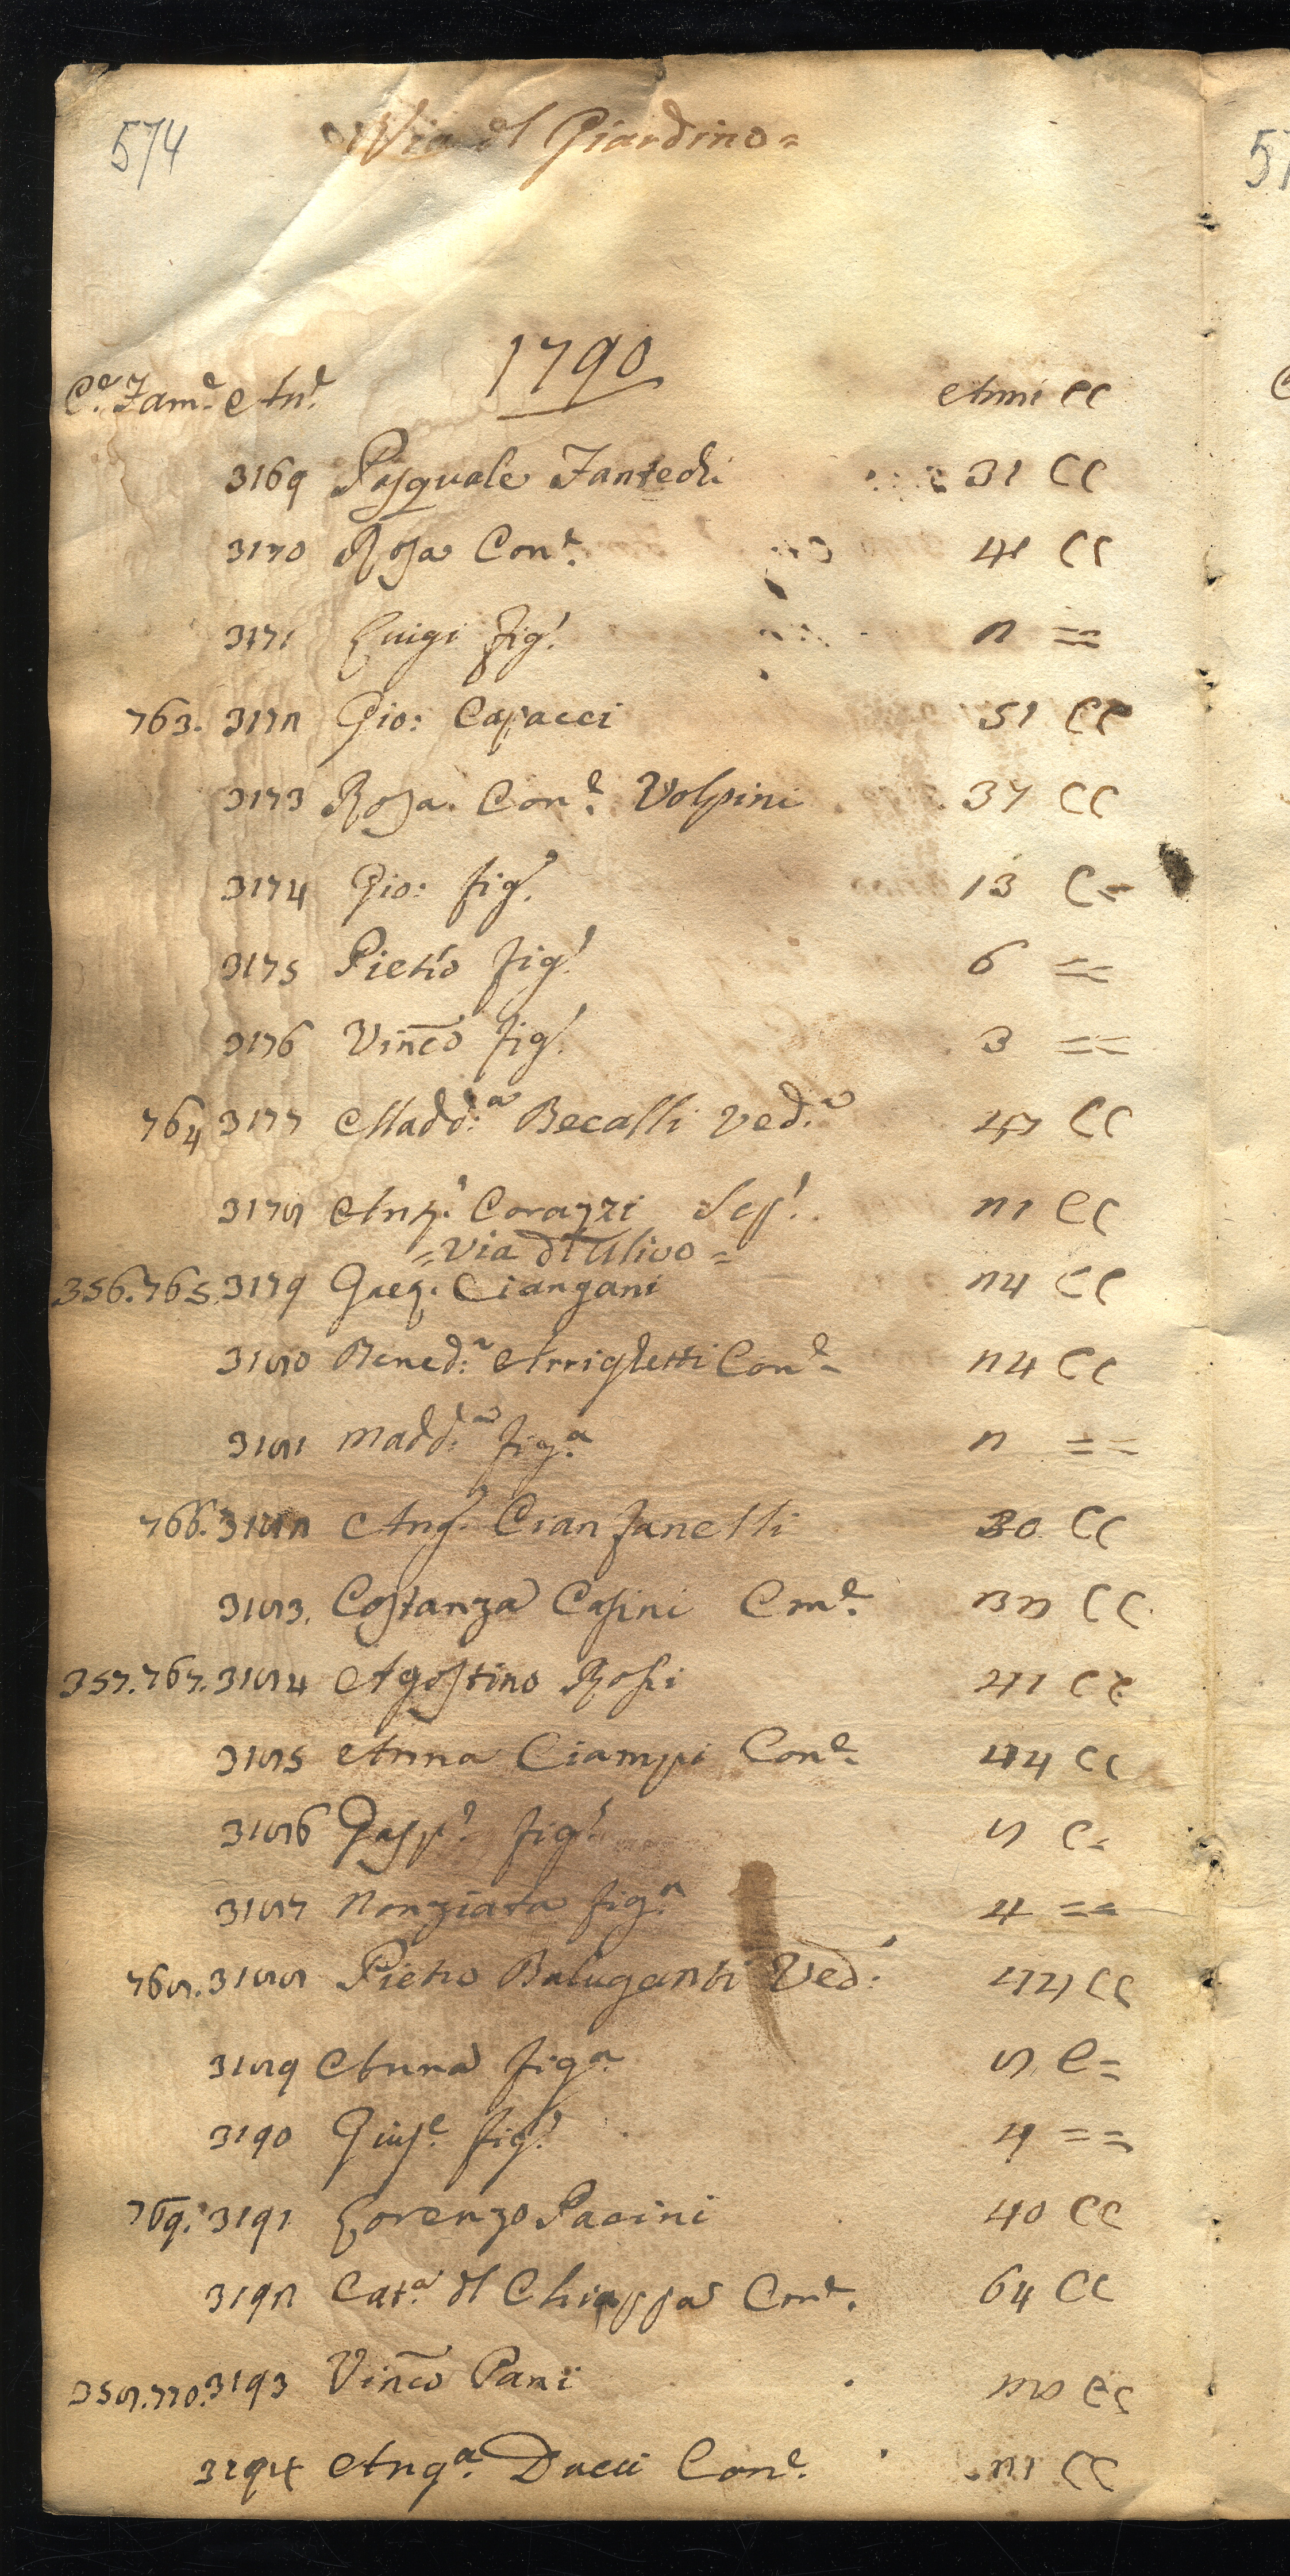 574 Via dl Giardino=
1790
Ce. Fame. Ane. Anni CC
3169 Pasquale Fantechi 31 CC
3170 Rosa Cone. CC
3171 Luigi figo. 2 ==
763. 3172 Gio: Capacci 51 CC
3173 Rosa. Cone. Volpini 37 CC
3174 Gio: figo. 13 C=
3175 Pietro figo. 6 ==
3176 Vinco figo. 3 ==
764 3177 Madd:a Becalli Ved:a 47 CC
3178 Ango: Corazzi 21 CC
=Via dl Ulivo=
356. 765. 3179 Greg. Ciangani 24 CC
3180 Bened:a Arrighetti Cone. 24 CC
3181 Madd:a figa. 2 ==
766. 3182 Ango. Cianfanelli 30 CC
3183. Costanza Casini Cone. CC
357. 767. 3184 Agostino Rossi 41 CC
3185 Anna Ciampi Cone. 44 CC
3186 Gaspo. figo. 8 C=
3187 Nonziata figa. 4 ==
768. 3188 Pietro Baluganti Vedo. CC
3189 Anna figa. 8 C=
3190 Giuse. figo. 4 ==
769. 3191 Lorenzo Pacini 40 CC
3192 Cata. dl Chiappa Cone. 64 CC
358. 770. 3193 Vinco Pani CC
3194 Anga. Ducci Cone. 21 CC